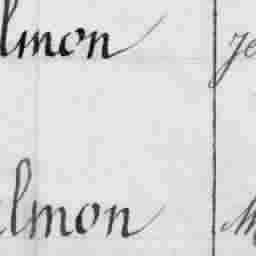 lmon Je
lmon